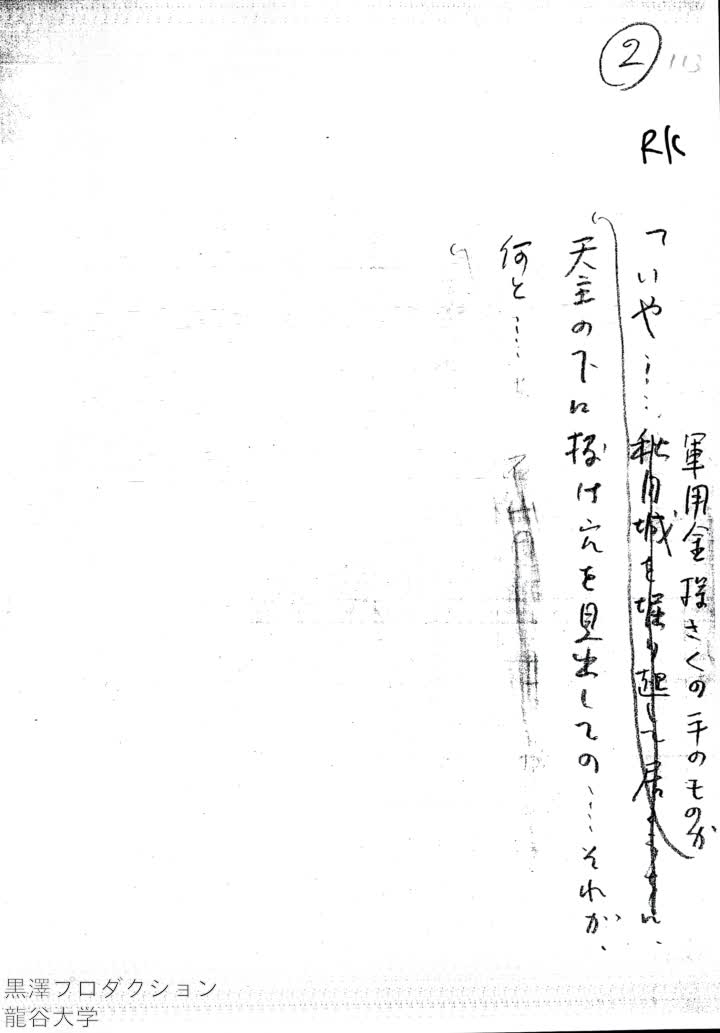 ② 113
RK
軍用金探さくの手のものが
「いや……秋月城を堀り起して居るうちに、
天主の下に抜け穴を見出しての……それが、
何と……
黒澤プロダクション
龍谷大学